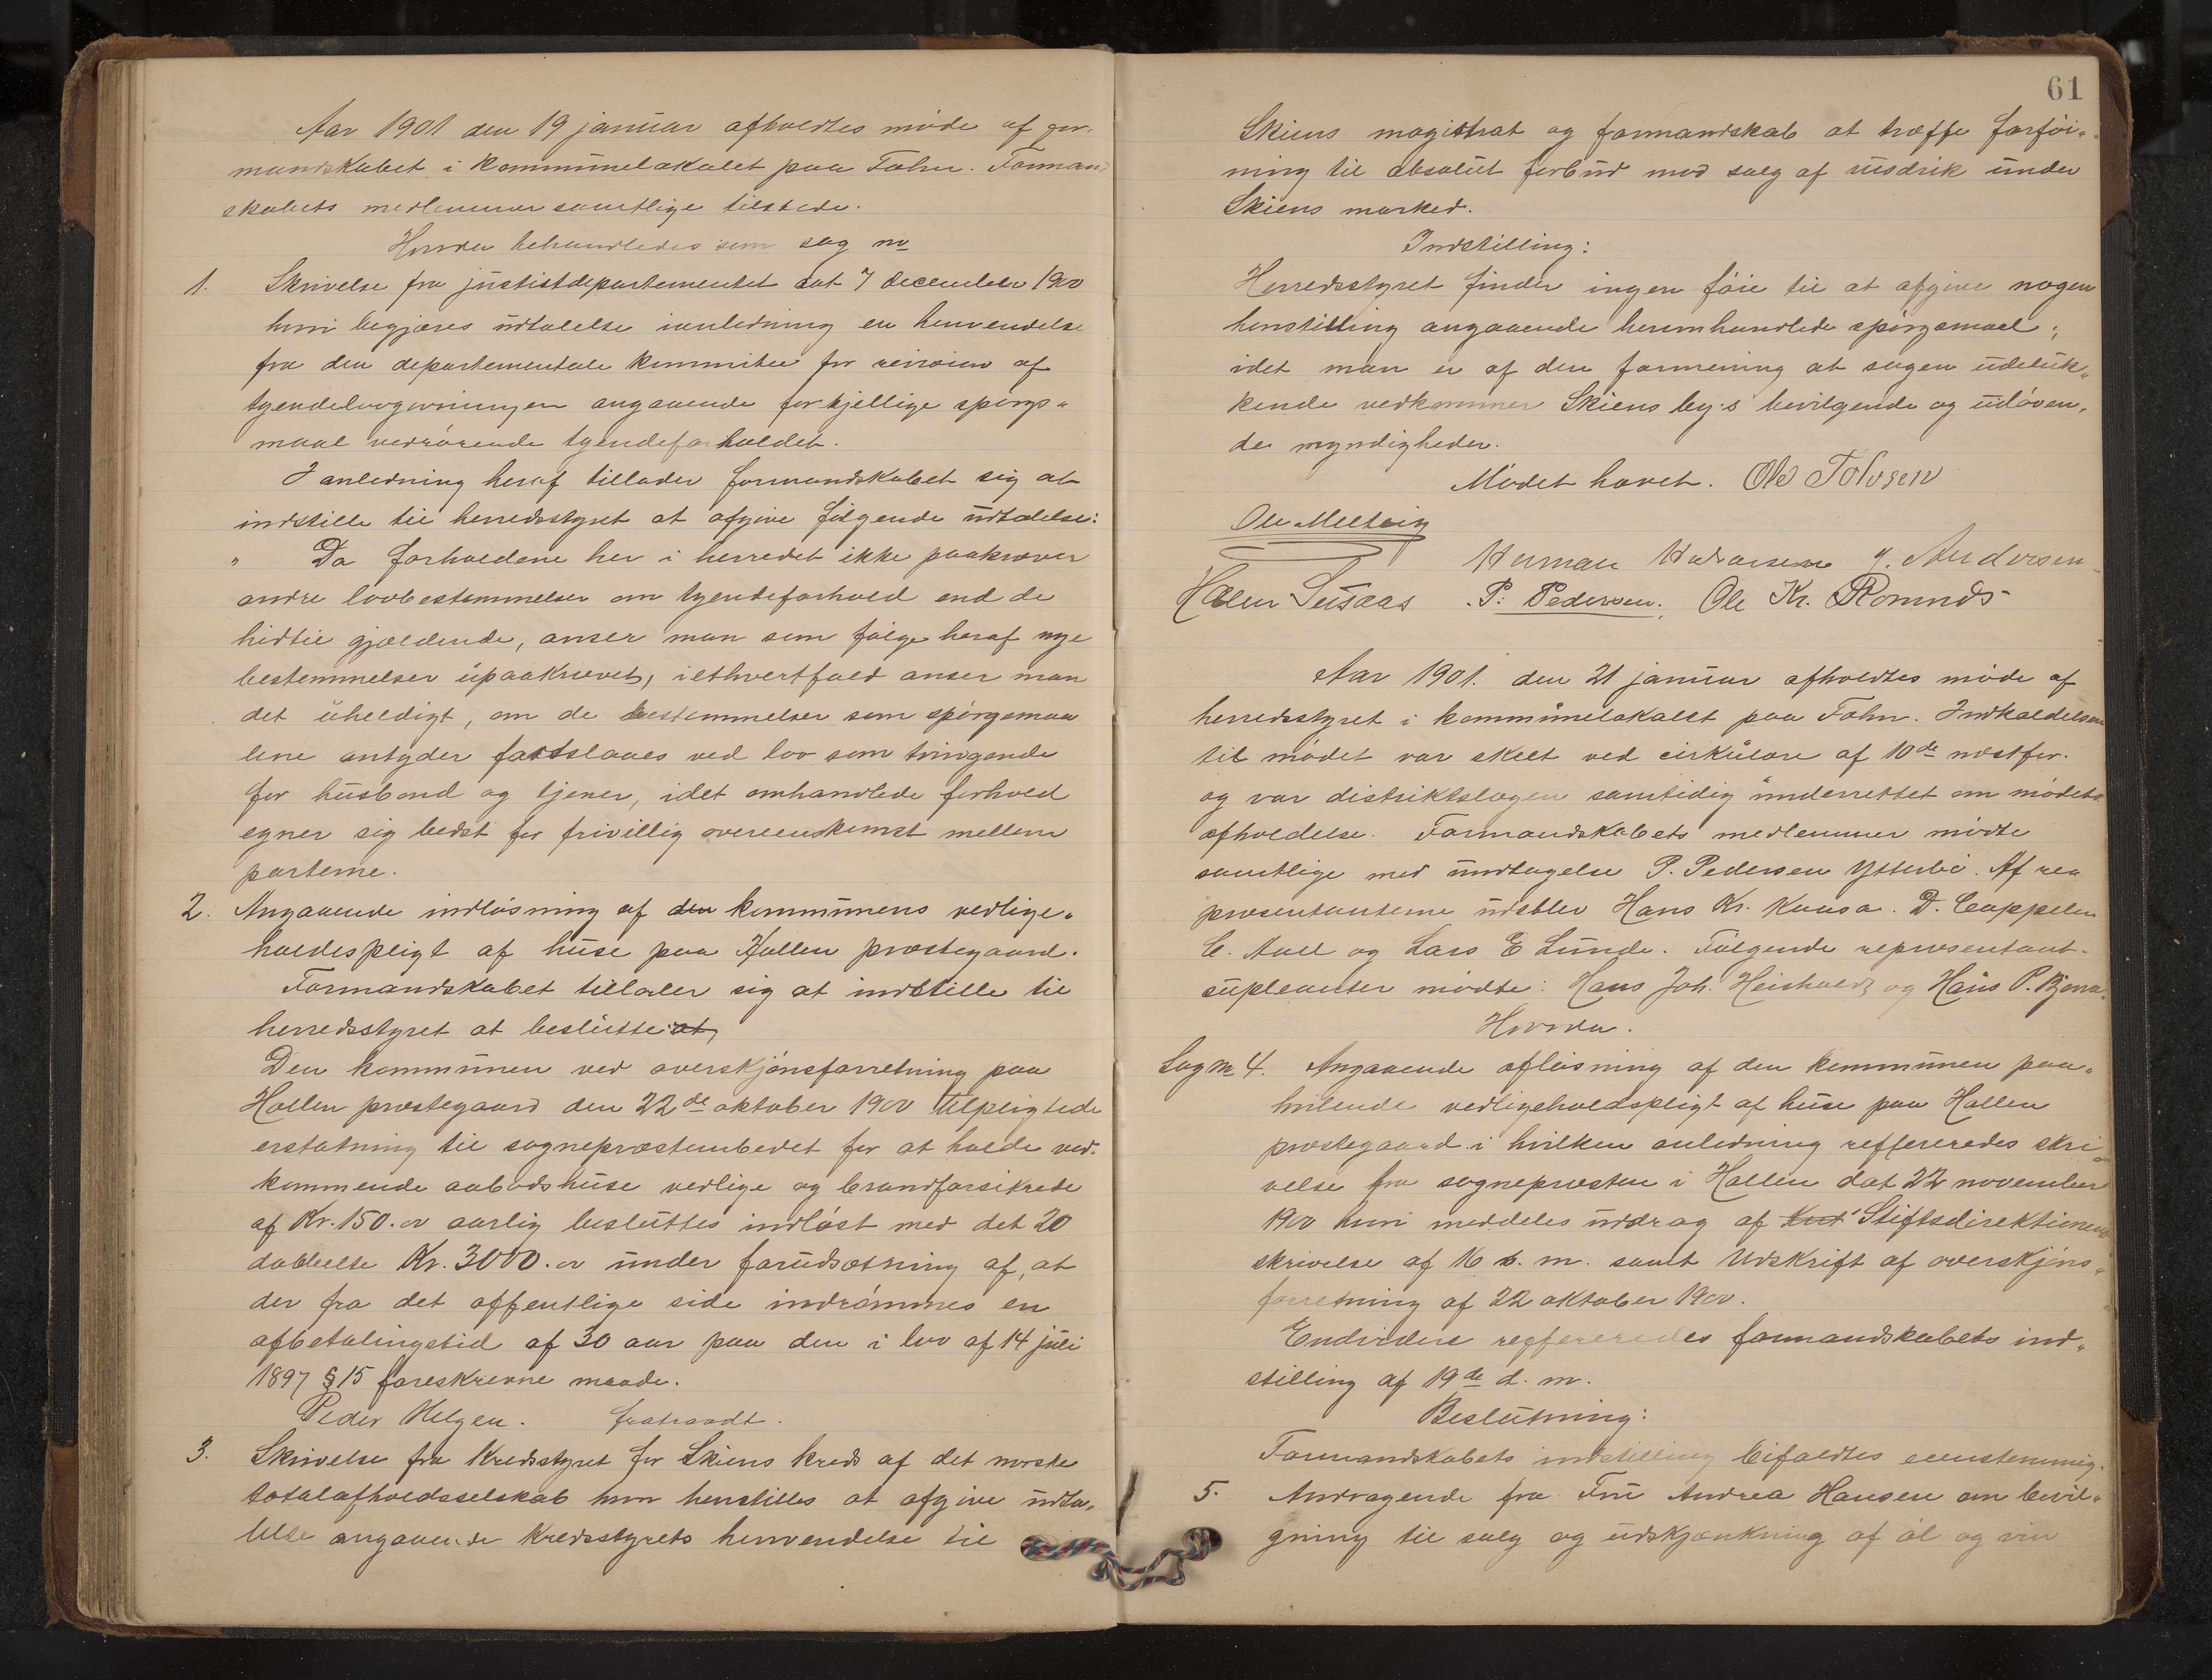 Aar 1901 den 19 januar afholdtes møde af for-
mandskabet i kommunelokalet paa Tohn. Forman
skabets medlemmer samtlige tilstede.
Hvorda behandledes som sag no
1. Skrivelse fra justistdepartementet dat 7 december 1900
hvori begjæres udtalelse ianledning en henvendelse
fra den departementale kommitee for revision af
tyendelovgivningen angaaende forkjellige spørgs-
maal vedrørende tyendeforholdet.
I anledning heraf tillader formandskabet sig at
indstille til herredsstyret at afgive følgende udtalelse:
" Da forholdene her i herredet ikke paakræver
andre lovbestemmelser om tyendeforhold end de
hidtil gjældende, anser man som følge heraf nye
bestemmelser upaakrævet, iethvertfald anser man
det uheldigt, om de bestemmelser som spørgsmaa
lene antyder fastslaaes ved lov som tvingende
for husbond og tjener, idet omhandlede forhold
egner sig bedst for frivillig overenskomst mellem
parterne.
2. Angaaende indløsning af den kommunens vedlige-
holdespligt af huse paa Hollen præstegaard.
Formandskabet tillader sig at indstille til
herredsstyret at beslutte: at,
Den kommunen ved overskjønsforretning paa
Hollen præstegaard den 22de oktober 1900 tilpligtede
erstatning til sognepræstembedet for at holde ved-
kommende aabodshuse vedlige og brandforsikrede
af Kr. 150.00 aarlig besluttes indløst med det 20
dobbelte Kr. 3000.00 under forudsætning af, at
der fra det offentlige side indrømmes en
afbetalingstid af 30 aar paa den i lov af 14 juli
1897 § 15 foreskrevne maade.
Peder Helgen. fratraadt.
3. Skrivelse fra Kredsstyret for Skiens kreds af det norske
totalafholdsselskab hvor henstilles at afgive udta-
lelse angaaende Kredsstyrets henvendelse til
61
Skiens magistrat og formandskab at træffe forføi-
ning til absolut forbud mod salg af rusdrik under
Skiens marked.
Indstilling:
Herredsstyret finder ingen føie til at afgive nogen
henstilling angaaende heromhandlede spørgsmaal;
idet man er af den formening at sagen udeluk-
kende vedkommer Skiens by's bevilgende og udøven-
de myndigheder.
Mødet hævet. Ole Tolvsen
Ole Melteig
Herman Halvorsen J. Andersen
Halvor P. Pedersen. Ole Kr. Romnes
Aar 1901. den 21 januar afholdtes møde af
herredsstyret i kommunelokalet paa Tohn. Indkaldelsen
til mødet var skeet ved cirkulære af 10de næstfor.
og var distriktslægen samtidig underrettet om mødets
afholdelse. Formandskabets medlemmer mødte
samtlige med undtagelse P. Pedersen Ytterbø. Af re
præsentanterne udeblev Hans Kr. Kaasa. D. Cappelen
C. Aall og Lars E Lunde. Følgende repræsentant-
supleanter mødte: Hans Joh. Heisholdt og Hans P.
Hvorda.
Sag no 4. Angaaende afløsning af den kommunen paa-
hvilende vedligeholdspligt af huse paa Hollen
præstegaard i hvilken anledning reffereredes skri-
velse fra sognepræsten i Hollen dat 22 november
1900 hvori meddeles uddrag af Stiftsdirektionens
skrivelse af 16 s. m. samt Udskrift af overskjøns-
forretning af 22 oktober 1900.
Endvidere reffereredes formandskabets ind-
stilling af 19de d. m.
Beslutning:
Formandskabets indstilling bifaldtes eenstemmig.
5. Andragende fra Fru Andrea Hansen om bevil-
gning til salg og udskjænkning af øl og vin